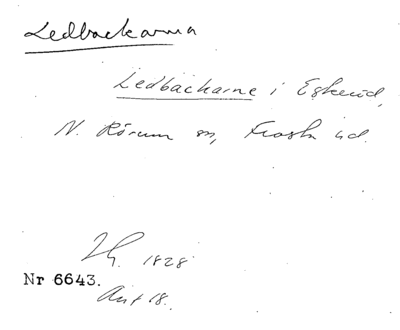 Ledbackarna
Ledbackarne i Eskeröd,
N. Rörum sn, Frosta hd.
1828
Nr 6643.
Akt 18.